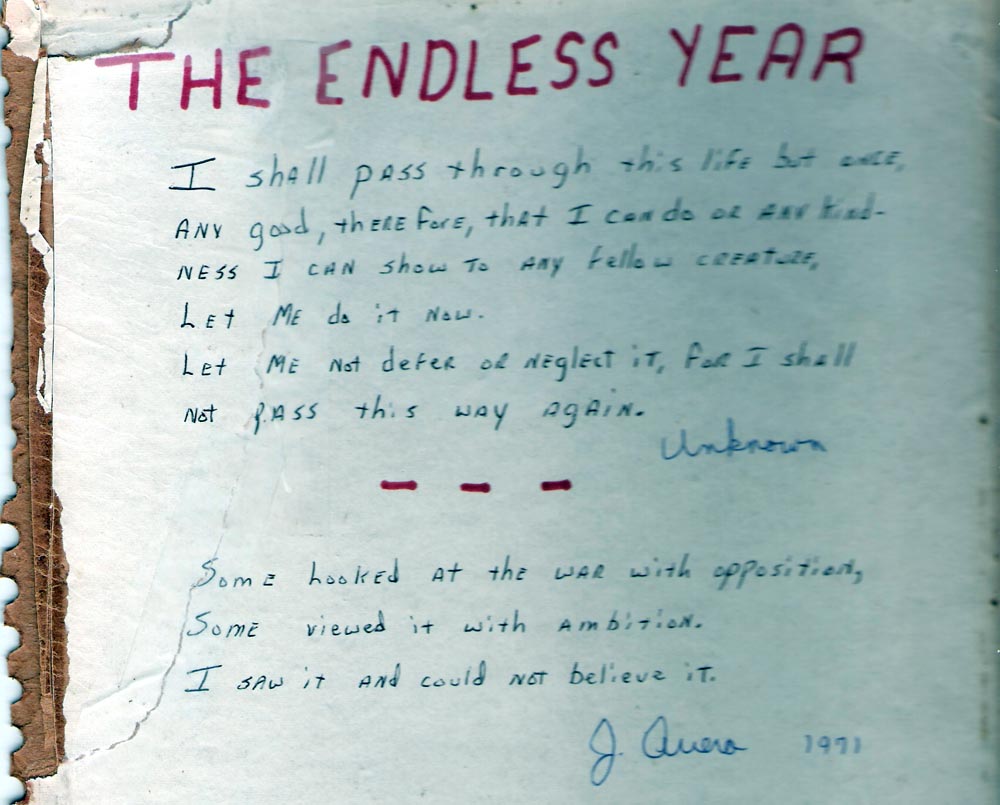 THE ENDLESS YEAR
I shall pass through this life but once,
Any good, therefore, that I can do or any kind-
ness I can show to any fellow creature,
Let me do it now.
Let me not defer or neglect it, for I shall
not pass this way again.
Unknown
- - -
Some looked at the war with opposition,
Some viewed it with ambition.
I saw it and could not believe it.
J. Quera 1971